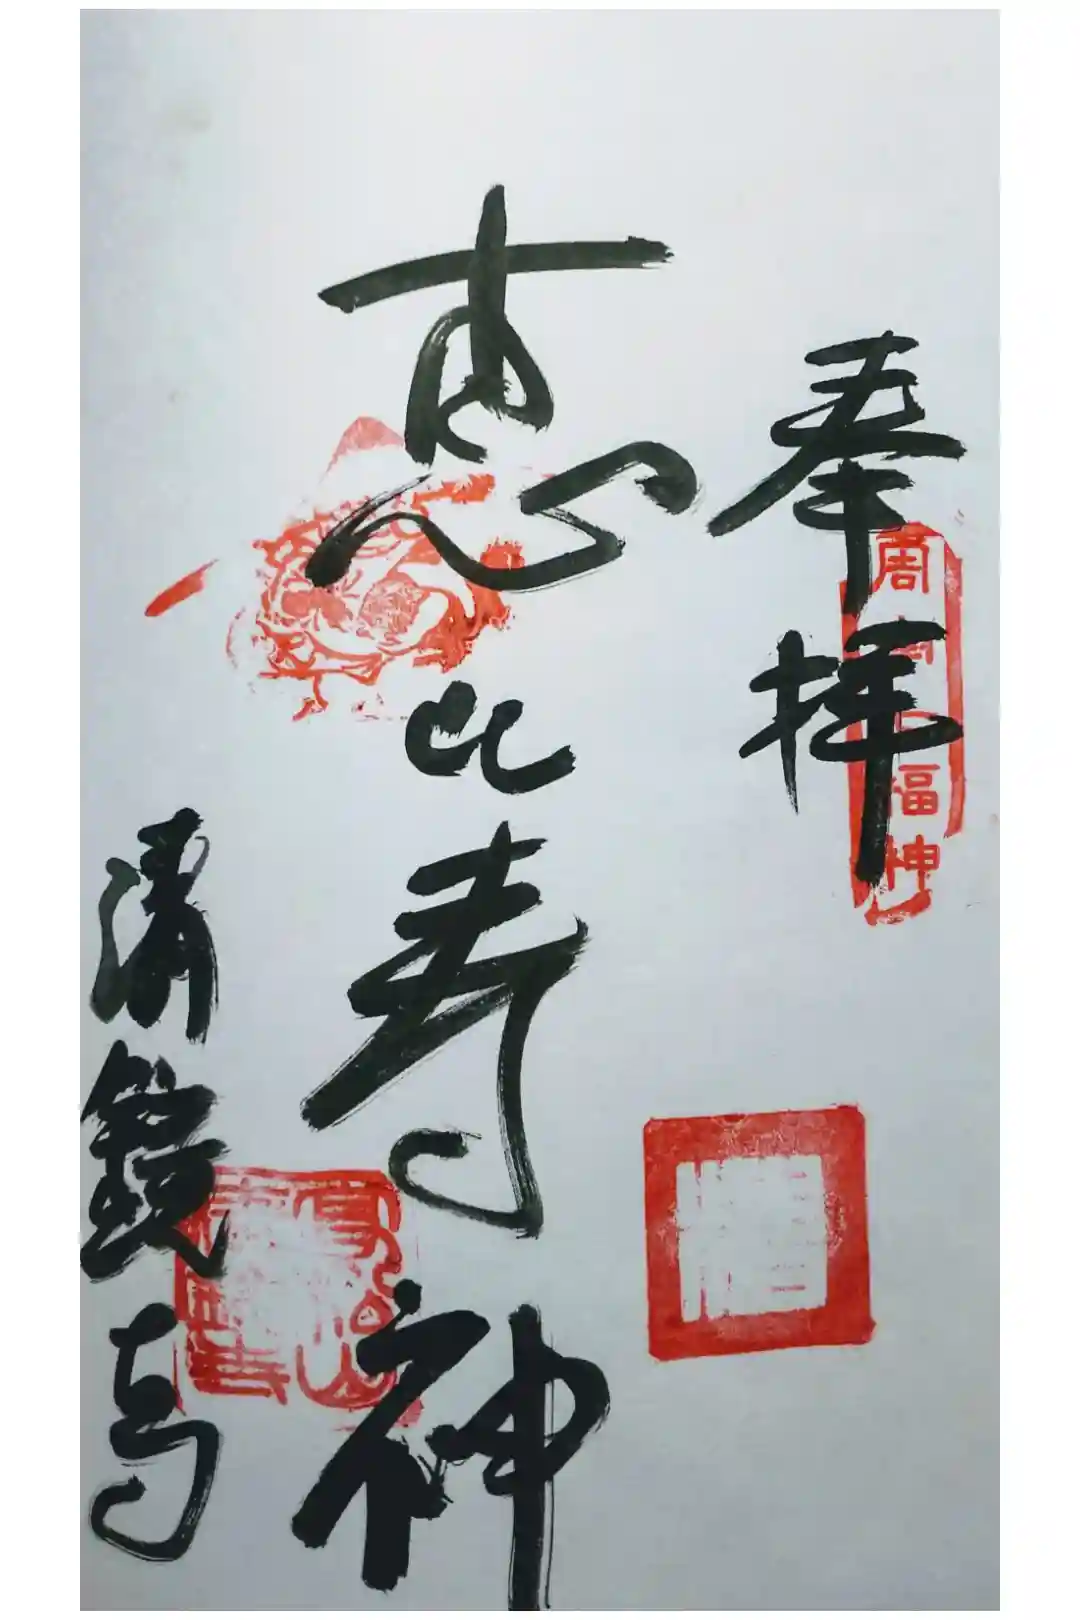 奉拝
周 福神
恵比寿神
清鏡寺